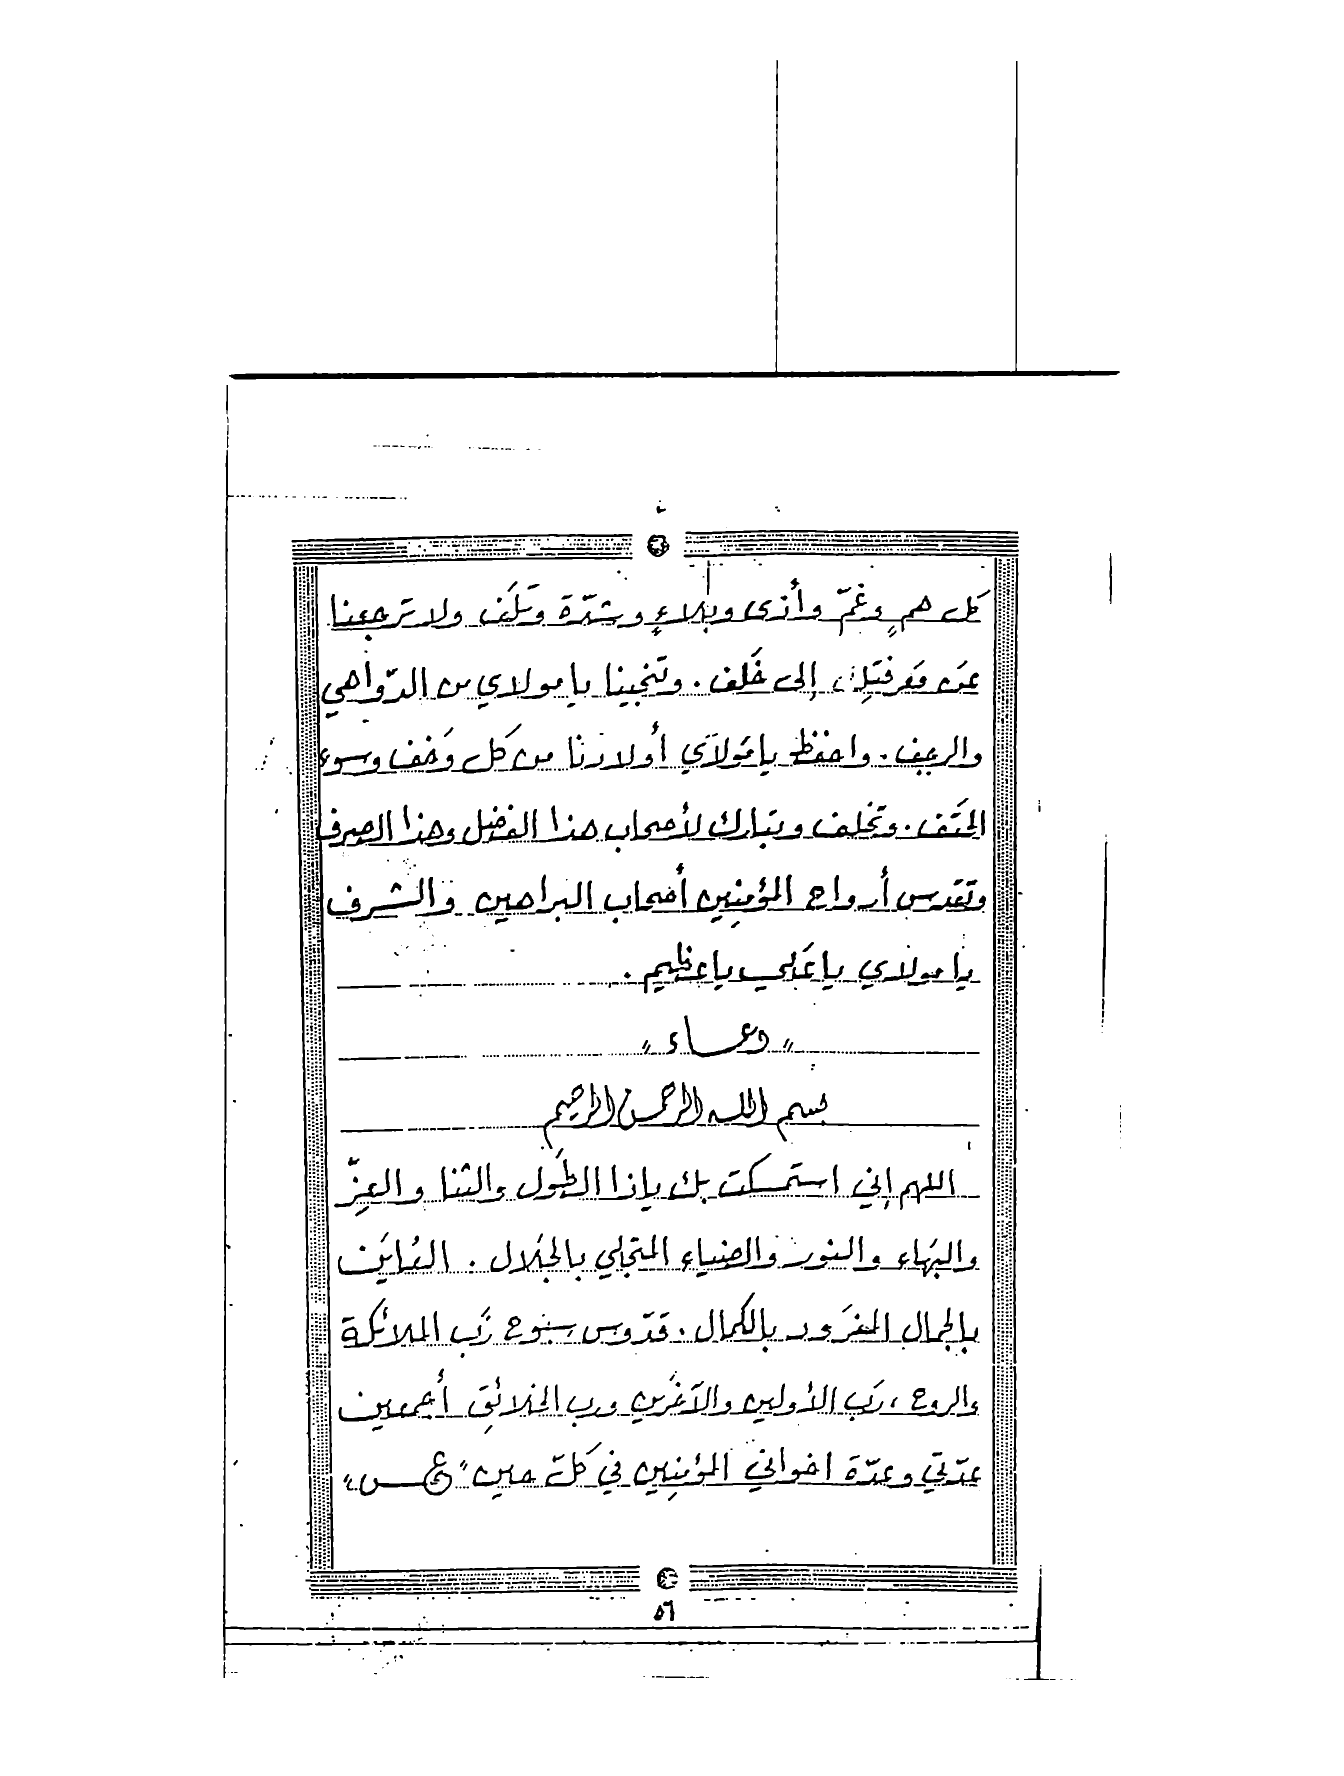 كل همٍ وغمّ وأذى وبلاءٍ وشدّة وتلَف ولا ترجعنا
عن معرفتك إلى خَلف . وتنجينا يا مولاي من الدّواهي
والرجف . واحفظ يا مَولاَي أولادنا من كل وَخف وسوء
الحتَف . وتخلف وتبارك لأصحاب هذا الفضل وهذا الصرف
وتقدس أرواح المؤمنِين أصحاب البراهين والشرف
يا مولاي يا عَلي يا عظيم .
" دعـاء "
بسم الله الرحمن الرحيم
اللهم إني استمسكت بك يا ذا الطَول والثنا والعِزّ
والبَهاء والنور والضياء المتجلي بالجَلال .
بالجمال المنفرَد بالكمال . قدّوس سبّوح رَب الملائكة
والروح ، رَب الأولين والآخَرين ورب الخلائِق أجمعين
عدّتي وعدّة اخواني المؤمنِين في كلّ حين " ع س "
٥٦